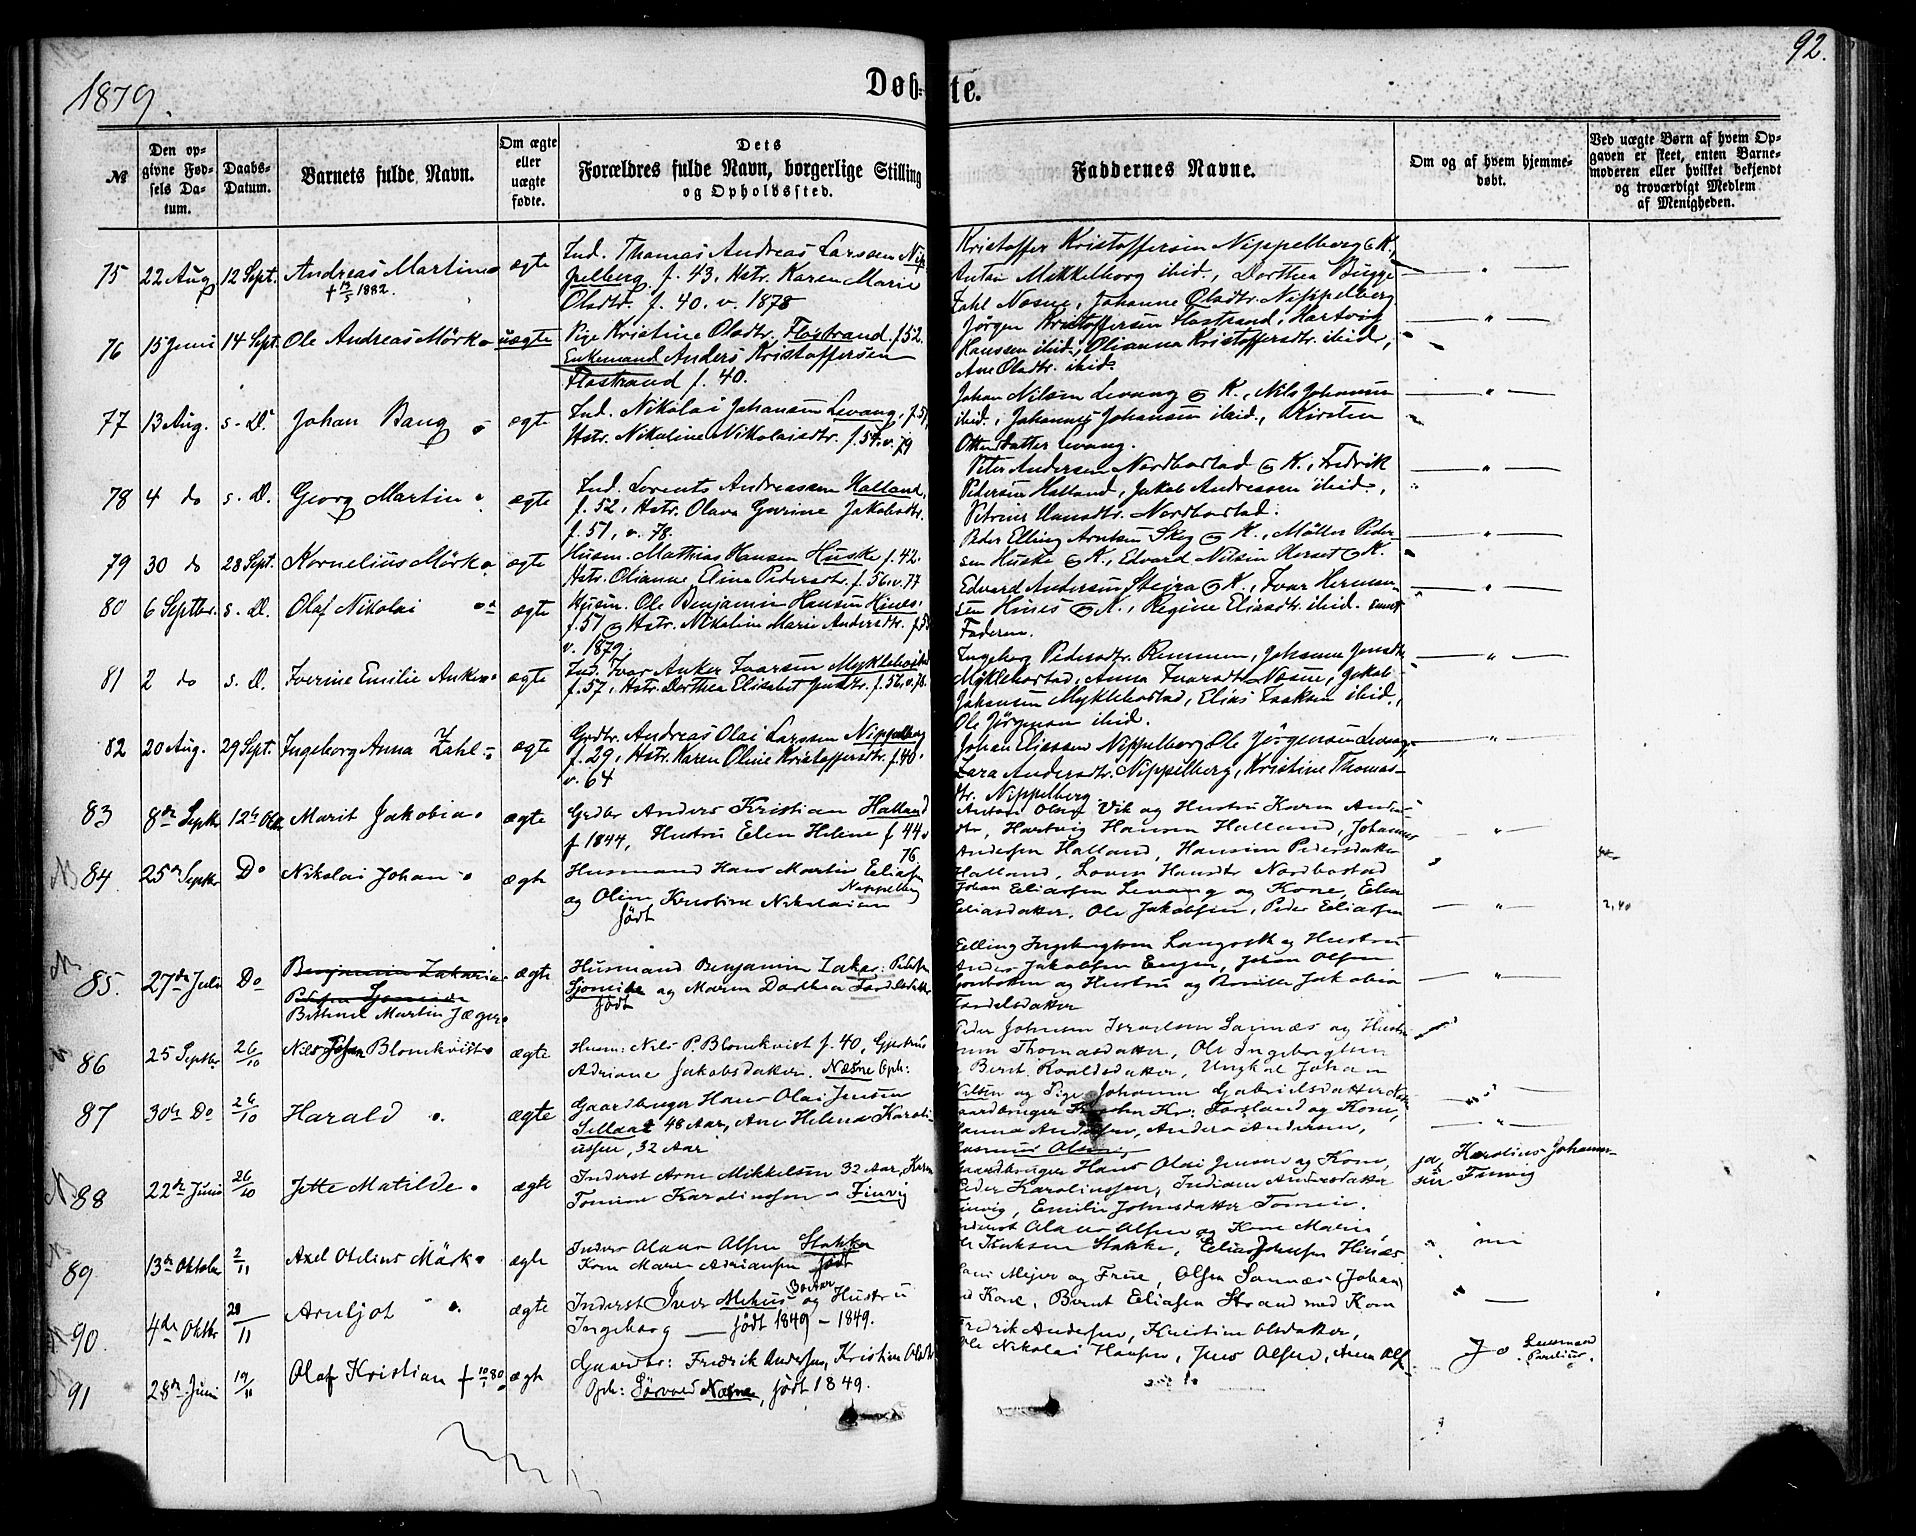 1879.
Døbte.
92.
№
Den opgivne Fødsels Datum.
Daabs-Datum.
Barnets fulde Navn.
Om ægte eller uægte fødte.
Dets Forældres fulde Navn, borgerlige Stilling og Opholdssted.
Faddernes Navne.
Om og af hvem hjemmedøbt.
Ved uægte Børn af hvem Opgaven er skeet, enten Barnemoderen eller hvilket bekjendt og troværdigt Medlem af Menigheden.
75 22 Aug 12 Sept. Andreas Martin ægte
† 19/5 1882.
Ind. Thomas Andreas Larssen Nip
pelberg f. 43, Hstr. Karen Marie
Olsdtr. f. 40. v. 1878
Kristoffer Kristoffersen Nippelberg & K.,
Antun Mikkelborg ibid., Dorthea Bugge
Zahl Næsne, Johanne Olsdtr. Nippelberg
76 15 Juni 14 Sept. Ole Andreas Mörk uægte
Pige Kristine Olsdtr. Flostrand f. 52.
Enkemand Anders Kristoffersen
Flostrand f. 40.
Jørgen Kristoffersen Flostrand, Hartvig
Hanssen ibid., Olianna Kristoffersdtr. ibid.,
Ane Olsdtr. ibid.
77 13 Aug. s. D. Johan Bang ægte
Ind. Nikolai Johansen Levang, f. 51,
Hstr. Nikoline Nikolaisdtr. f. 54. v. 79
Johan Nilsen Levang & K., Nils Johansen
ibid., Johannes Johansen ibid., Kirsten
Ottersdatter Levang.
78 4 do s. D. Georg Martin ægte
Ind. Lorents Andreassen Halland,
f. 52, Hstr. Olava Gurine Jakobsdtr.
f. 51, v. 78.
Peter Andersen Nordbostad & K., Fredrik
Pedersen Halland, Jakob Andreassen ibid.,
Petrine Hansdtr. Nordbostad.
79 30 do 28 Sept. Kornelius Mörk ægte
Husm. Mathias Hansen Huske f. 42.
Hstr. Olianne Elina Pedersdtr. f. 56. v. 77
Peder Elling Arntsen Skog & K., Møller Peder
sen Huske & K., Edvard Nilsen Herset & K.
80 6 Septbr. s. D. Olaf Nikolai ægte
Husm. Ole Benjamin Hansen Hines,
f. 51 & Hstr. Nikoline Marie Andersdtr.
v. 1879.
Edvard Andersen Steira & K., Ivar Herman
sen Hines & K., Regine Eliasdtr. ibid. samt
Faderen.
81 2 do s. D. Iverine Emilie Anker ægte
Ind. Ivar Anker Ivarsen Myklebostad
f. 57, Hstr. Dorthea Elisabet Jensdtr. f. 56, v. 78.
Ingeborg Pedersdtr. Remmen, Johanna Jensdtr.
Myklebostad, Anna Ivarsdtr. Næsne, Jakob
Johansen Myklebostad, Elias Isaksen ibid.,
Ole Jørgensen ibid.
82 20 Aug. 29 Sept. Ingeborg Anna Zahl ægte
Grdbr. Andreas Olai Larssen Nippelberg
f. 29, Hstr. Karen Oline Kristoffersdtr. f. 40.
v. 64
Johan Eliassen Nippelberg, Ole Jørgensen Levang,
Lara Andersdtr. Nippelberg, Kristine Thomas-
dtr. Nippelberg.
83 8de Septbr 12te Okt Marit Jakobia ægte
Grdbr Anders Kristian Halland
f 1844, Hustru Elen Helene f 44
76
Antun Olsen Vik og Hustru Karen Anders
dtr, Hartvig Hansen Halland, Johannes
Andersen Halland, Hansine Pedersdatter
Halland, Lovise Hansdtr Nordbostad
84 25de Septbr Do Nikolai Johan ægte
Husmand Hans Martin Eliasen
Nippelberg
og Oline Kristine Nikolaisen
født
Johan Eliassen Levang og Kone, Elen
Eliasdatter, Ole Jakobsen, Peder Eliassen
2,40
85. 27de Juli Do Benjamin Zakarias
Petter Martin Jæger ægte
Husmand Benjamin Zakar: Pedersen
og Maren Dorthea
født
Elling Ingebrigtsen Langseth og Hustru
Anders Jakobsen Engen, Johan Olsen
og Hustru og Jakobia
86 25 Septbr 26/10 Nils Johan Blomkvist ægte
Husm: Nils P. Blomkvist f. 40, Gjestrus
Adriane Jakobsdatter. Næsne Oph:
Peder Johnsen Israelsen Sannæs og Hustru
Thomasdatter, Ole Ingebrigtsen
Bernt. Roaldsdatter, Ungkal Johan
Nilsen og Pige Johanna Gabrielsdatter
87 30te Do 26/10 Harald ægte
Gaardbruger Hans Olai Jensen
Sellaat 48 Aar, Ane Helena Karoli-
ussen, 32 Aar
Gaardbruger Kr: Forsland og Kone,
Hanna Andersen, Anders Andersen,
Rasmus Olsen,
88 22de Juni 26/10 Jette Matilde ægte
Inderst Arne Mikkelsen 32 Aar, Karen
Tomine Karolinssen Finvig
Gaardbruger Hans Olai Jensen og Kone,
Peder Karolinssen, Indiane Andersdatter
Finvig, Emilie Johnsdatter Tomvik.
ja, Karolius Johannes-
sen Finvig
89. 13de Oktober 2/11 Axel Otelius Mörk ægte
Inderst Olaus Olsen Stokke
Kone Maren Adriansen født
Inderst Olaus Olsen og Kone Maren,
Isaksen Stokke, Elias Johnsen Hines.
nei
90. 4de Oktbr 28/11 Arnljot ægte
Inderst Iver Mehus og Hustru
Ingeborg født 1849 - 1849.
Mejer og Frue, Olsen Sannæs (Johan)
med Kone, Bernt Eliasen Strand med Kone
91 28de Juni 19/11 Olaf Kristian † 10/1 80 ægte
Gaardbr: Fredrik Andersen, Kristine Olsdtr
Oph: Sørvold Næsne, født 1849.
Fredrik Andersen, Kristine Olsdatter,
Ole Nikolai Hansen, Jens Olsen, Anna Ols
Jo Lensmand